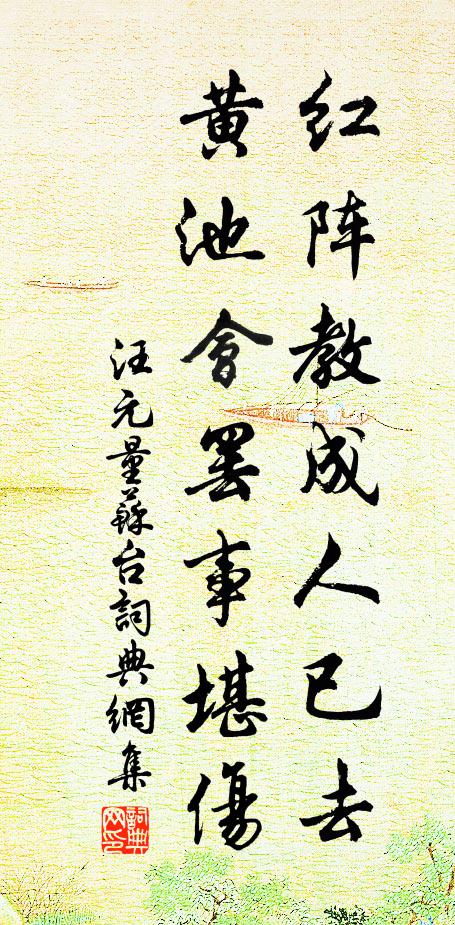 红阵教成人已去
黄池會罢事堪傷
汪元量蘇台詞典網集
詞典網印